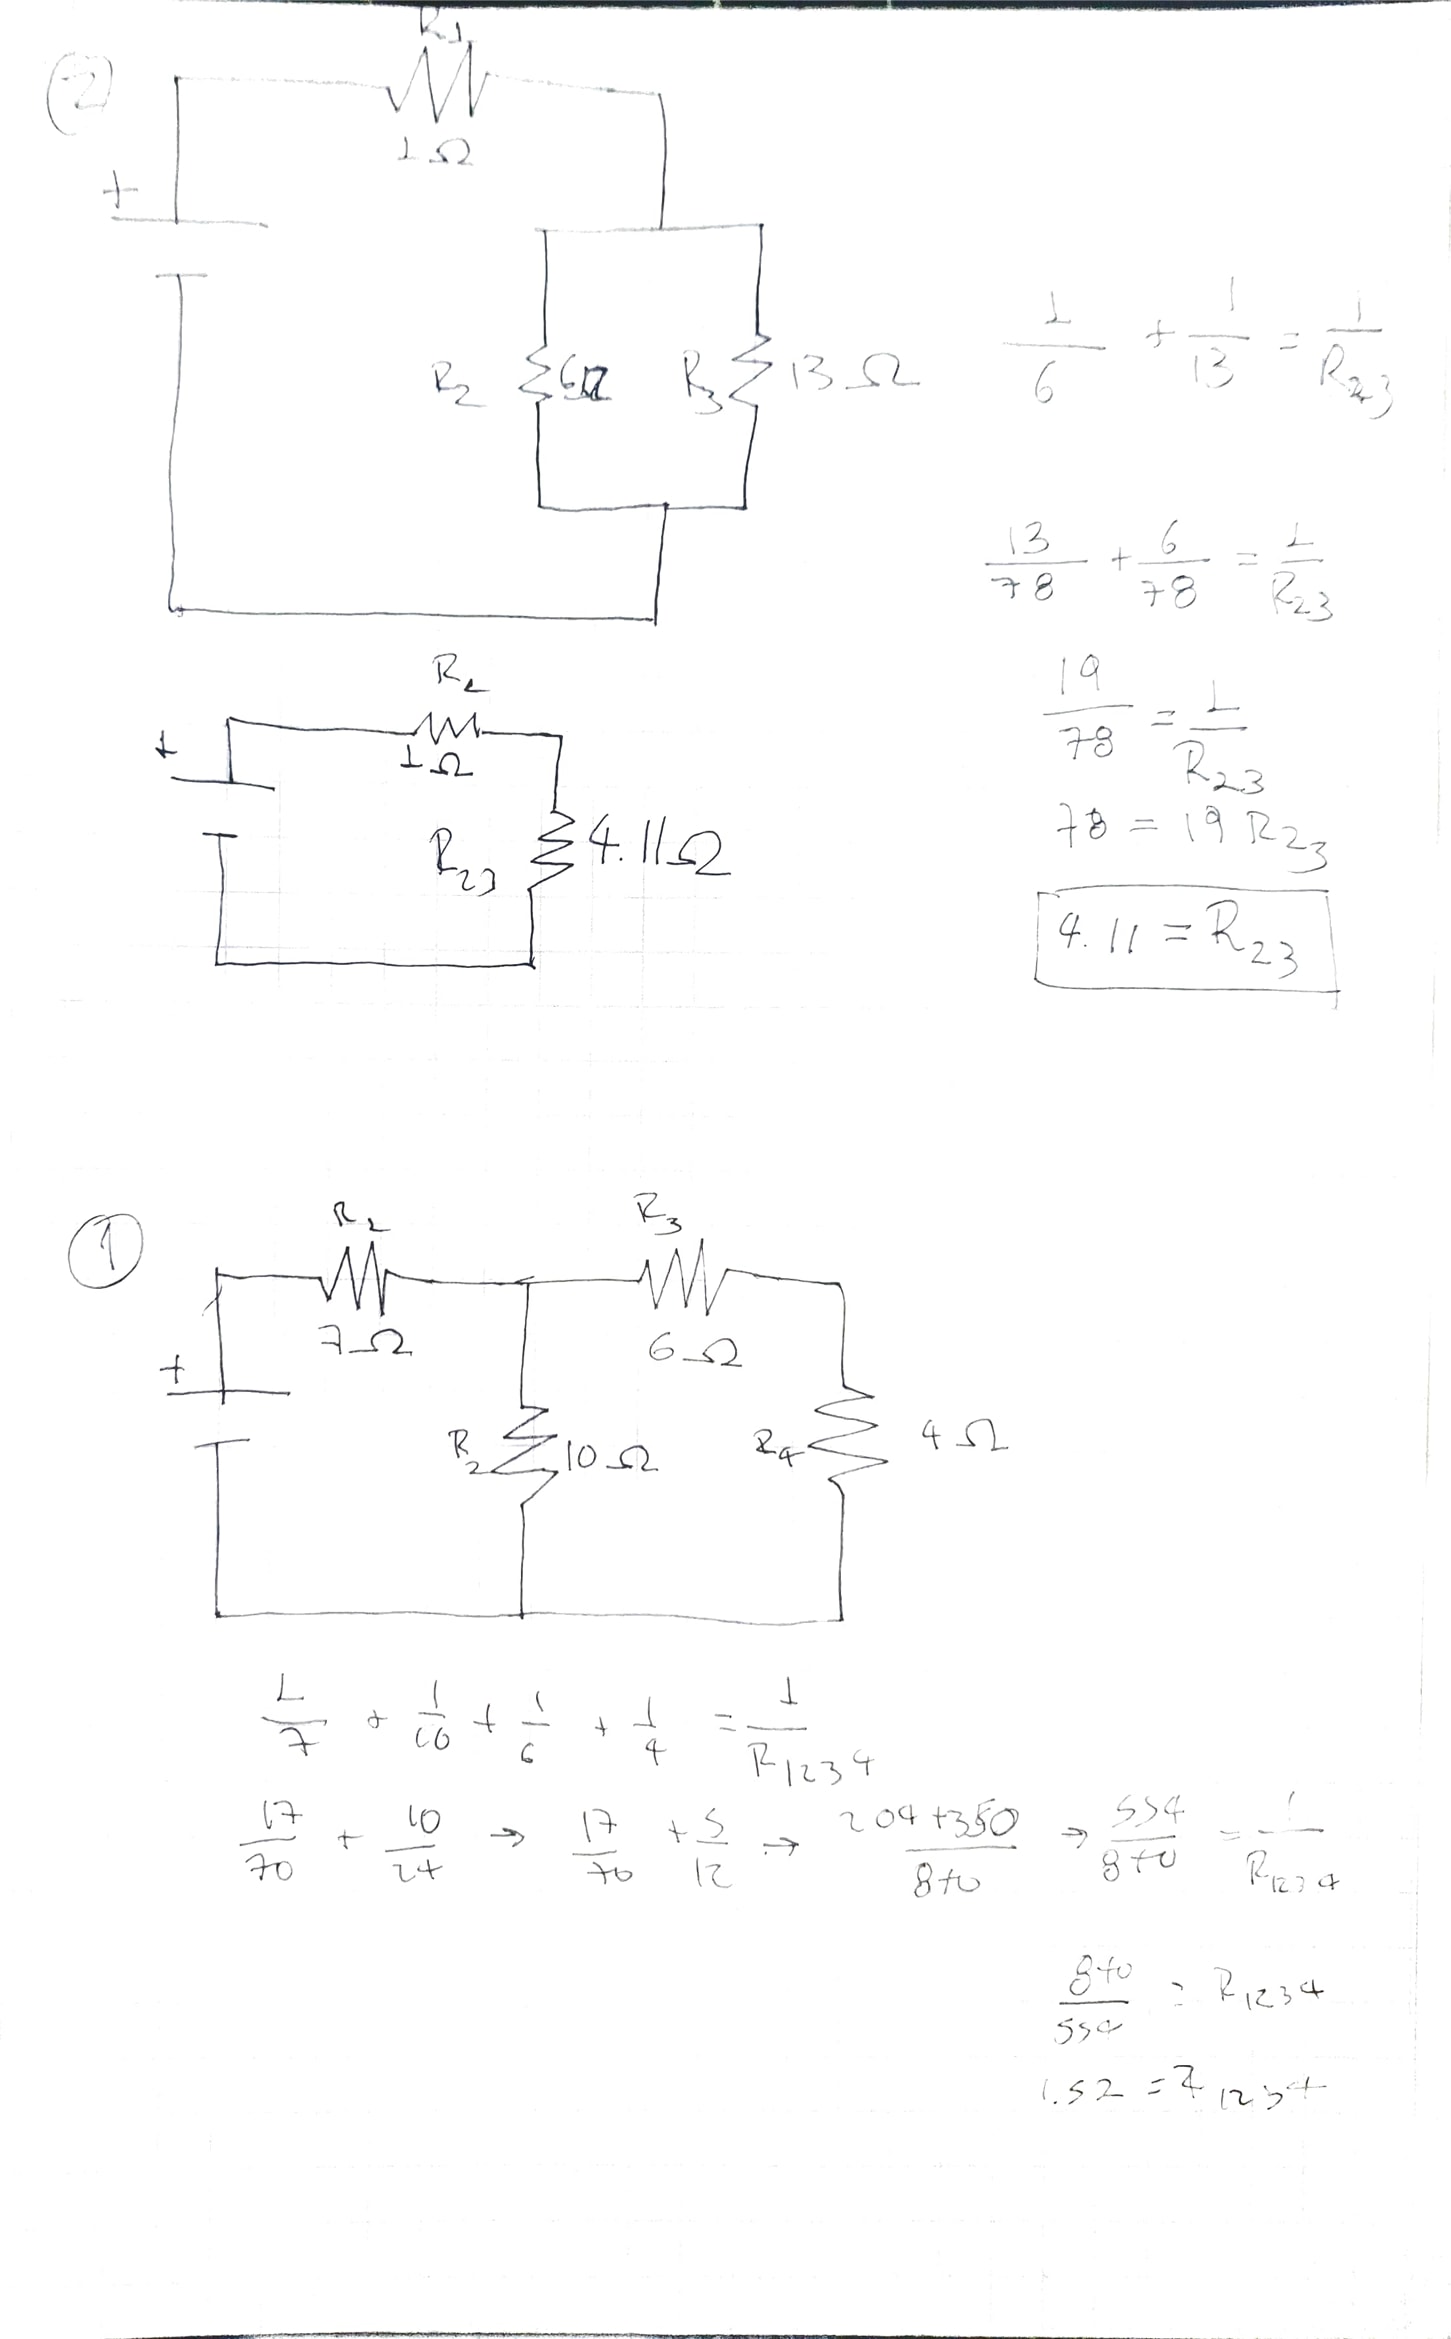 (2)
R1
1Ω
+
R2 6Ω R3 13Ω
1/6 + 1/13 = 1/R23
13/78 + 6/78 = 1/R23
19/78 = 1/R23
78 = 19 R23
4.11 = R23
R1
1Ω
+
R23 4.11Ω
1
R1 R3
7Ω 6Ω
+
R2 10Ω R4 4Ω
1/7 + 1/10 + 1/6 + 1/4 = 1/R1234
17/70 + 10/24 → 17/70 + 5/12 → 204+350/840 → 554/840 = 1/R1234
840/554 = R1234
1.52 = R1234